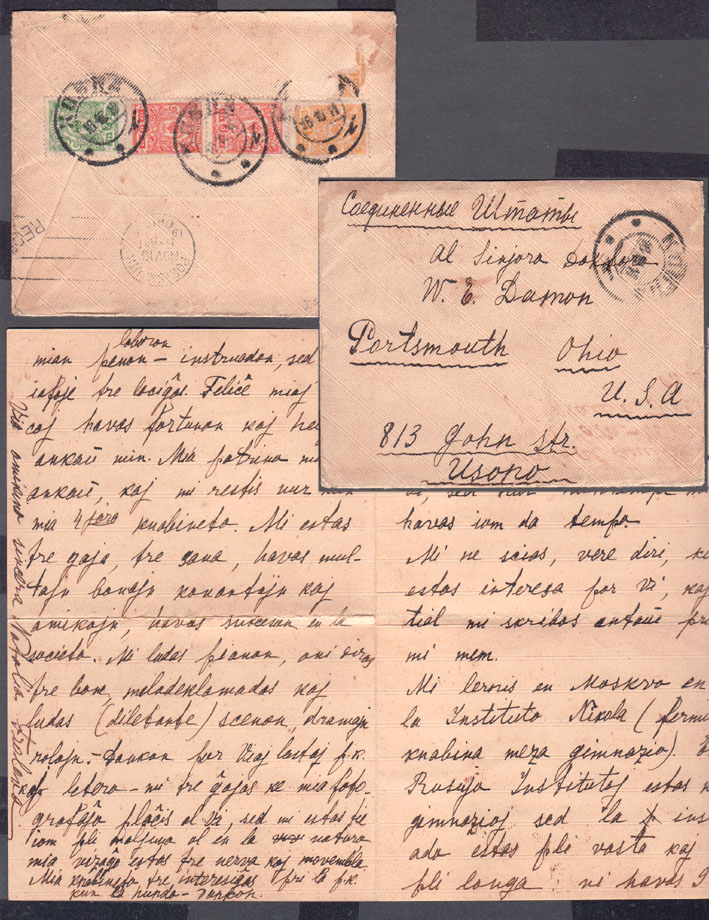 Соединенные Штаты
al Sinjoro Doktoro
W. E. Damon
Portsmouth Ohio
U.S.A
813 John str.
Usono
laboron
mian penon - instruadon, sed
tre Feliĉe miaj
havas fortunon kaj
ankaŭ min. Mia patrino
ankaŭ, kaj mi restis nur
mia 4 jara knabineto. Mi estas
tre gaja, tre sana, havas mul-
tajn bonajn konantajn kaj
amikojn, havas sukceson en la
societo. Mi ludas pianon, oni diras
tre bone, melodeklamadas kaj
ludas (diletante) scenon, dramajn
rolojn. - Dankon por Viaj lastaj p.k.
kaj letero - mi tre ĝojas ke mia foto-
grafaĵo plaĉis al Vi, sed mi estas tie
iom pli maljuna ol en la naturo
mia vizaĝo estas tre nerva kaj movebla
Mia knabineto tre interesiĝas pri la p.k.
kun la hundo - dankon.
Via amikino sincera Natalia
havas iom da tempo
Mi ne scias, vere diri,
estas interesa por Vi, kaj
tial mi skribos antaŭ
mi mem.
Mi lernis en Moskvo en
la Instituto Nikola (
knabina meza gimnazio).
Rusujo Institutoj estas
gimnazioj sed la
ado estas pli vasta kaj
pli longa: ni havas 9